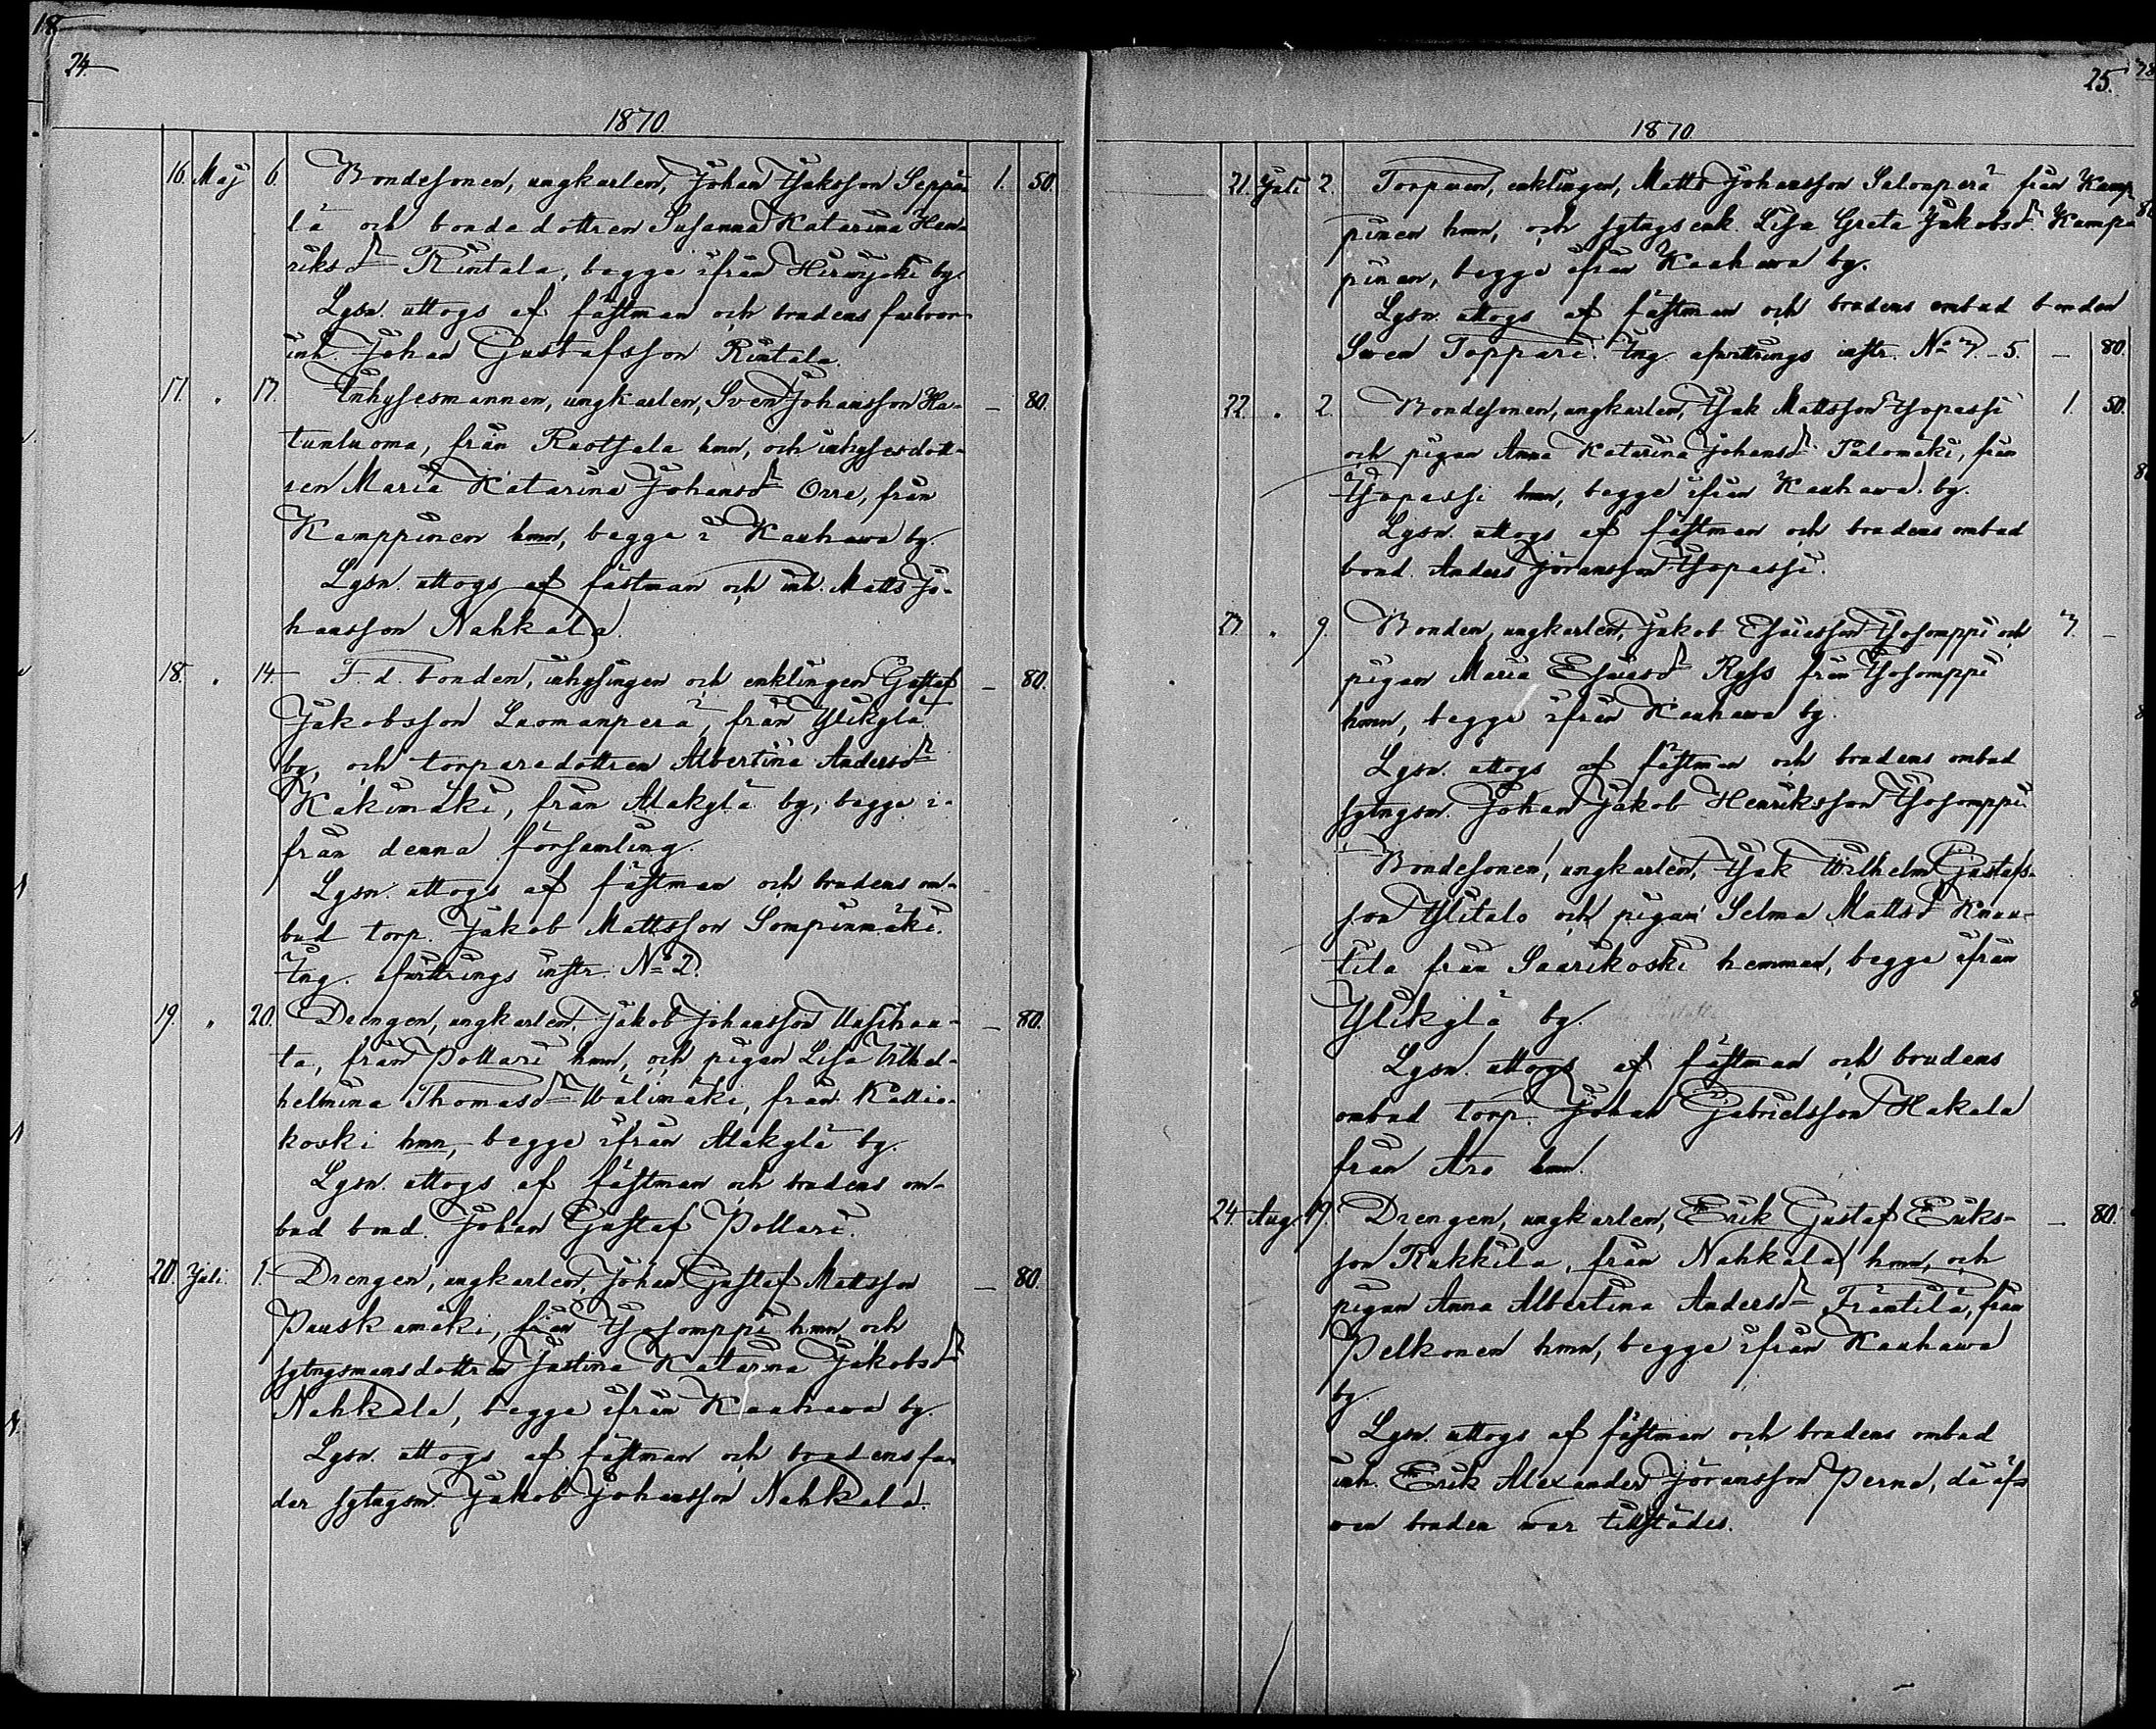 24.
1870.
16. Maj 6. Bondesonen, ungkarlen, Johan Isaksson Seppä- 1. 50.
lä och bondedottren Susanna Katarina Hen-
riksdr Rintala, begge ifrån Hirvijoki by.
Lysn. uttogs af fästman och brudens farbror
inh. Johan Gustafsson Rintala.
17. " 13. Inhysesmannen, ungkarlen, Sven Johansson Ha- — 80.
tunluoma, från Ruotsala hmn, och inhysesdott-
ren Maria Katarina Johansdr Orre, från
Kamppinen hmn, begge i Kauhawa by.
Lysn. uttogs af fästman och inh. Matts Jo-
hansson Nahkala.
18. " 14 F. d. bonden, inhysingen och enklingen Gustaf — 80.
Jakobsson Luomanperä, från Ylikylä
by, och torparedottren Albertina Andersdr
Kakimäki, från Alakylä by, begge i-
från denna församling.
Lysn. uttogs af fästman och brudens om-
bud torp. Jakob Mattsson Sompinmäki.
Ing. afvittrings instr. No 2.
19. " 20. Drengen, ungkarlen, Jakob Johansson - — 80.
ta, från Pollari hmn, och pigan Lisa Wilhel-
helmina Thomasdr Wälimäki, från Kallio-
koski hmn, begge ifrån Alakylä by.
Lysn. uttogs af fästman och brudens om-
bud bond. Johan Gustaf Pollari.
20. Juli. 1. Drengen, ungkarlen, Johan Gustaf Mattsson — 80.
Pauskamäki, från Isosomppi hmn, och
sytngsmansdottren Justina Katarina Jakobsdr
Nahkala, begge ifrån Kauhawa by.
Lysn. uttogs af fästman och brudens fa-
der sytngsm. Jakob Johansson Nahkala.
25.
1870.
21. Juli 2. Torparen, enklingen, Matts Johansson Saloperä från Kamp-
pinen hmn, och sytngsenk. Lisa Greta Jakobsdr Kamp-
pinen, begge ifrån Kauhawa by.
Lysn. uttogs af fästman och brudens ombud bonden
Swen Toppari. Ing. afvittrings instr. No 3.-5. — 80.
22. " 2. Bondesonen, ungkarlen, Isak Mattsson Isopassi 1. 50.
och pigan Anna Katarina Johansdr Palomäki, från
Isopassi hmn, begge ifrån Kauhawa by.
Lysn. uttogs af fästman och brudens ombud
bond. Anders Jöransson Isopassi.
23. " 9. Bonden, ungkarlen, Jakob Esaiasson Isosomppi och 3. —
pigan Maria Esaiasdr Ryss från Isosomppi
hmn, begge ifrån Kauhawa by.
Lysn. uttogs af fästman och brudens ombud
sytngsm. Johan Jakob Henriksson Isosomppi.
Bondesonen, ungkarlen, Isak Wilhelm Gustafs-
son Ylitalo och pigan Selma Mattsd Knuu-
tila från Saarikoski hemman, begge ifrån
Ylikylä by.
Lysn. uttogs af fästman och brudens
ombud torp. Johan Gabrielsson Hakala
från Aro hmn.
24. Aug. 19. Drengen, ungkarlen, Erik Gustaf Eriks- — 80.
son Rukkila, från Nahkala hmn, och
pigan Anna Albertina Andersdr Fräntilä, från
Pelkonen hmn, begge ifrån Kauhawa
by.
Lysn. uttogs af fästman och brudens ombud
inh. Erik Alexander Jöransson Perna, då äf-
wen bruden war tillstädes.